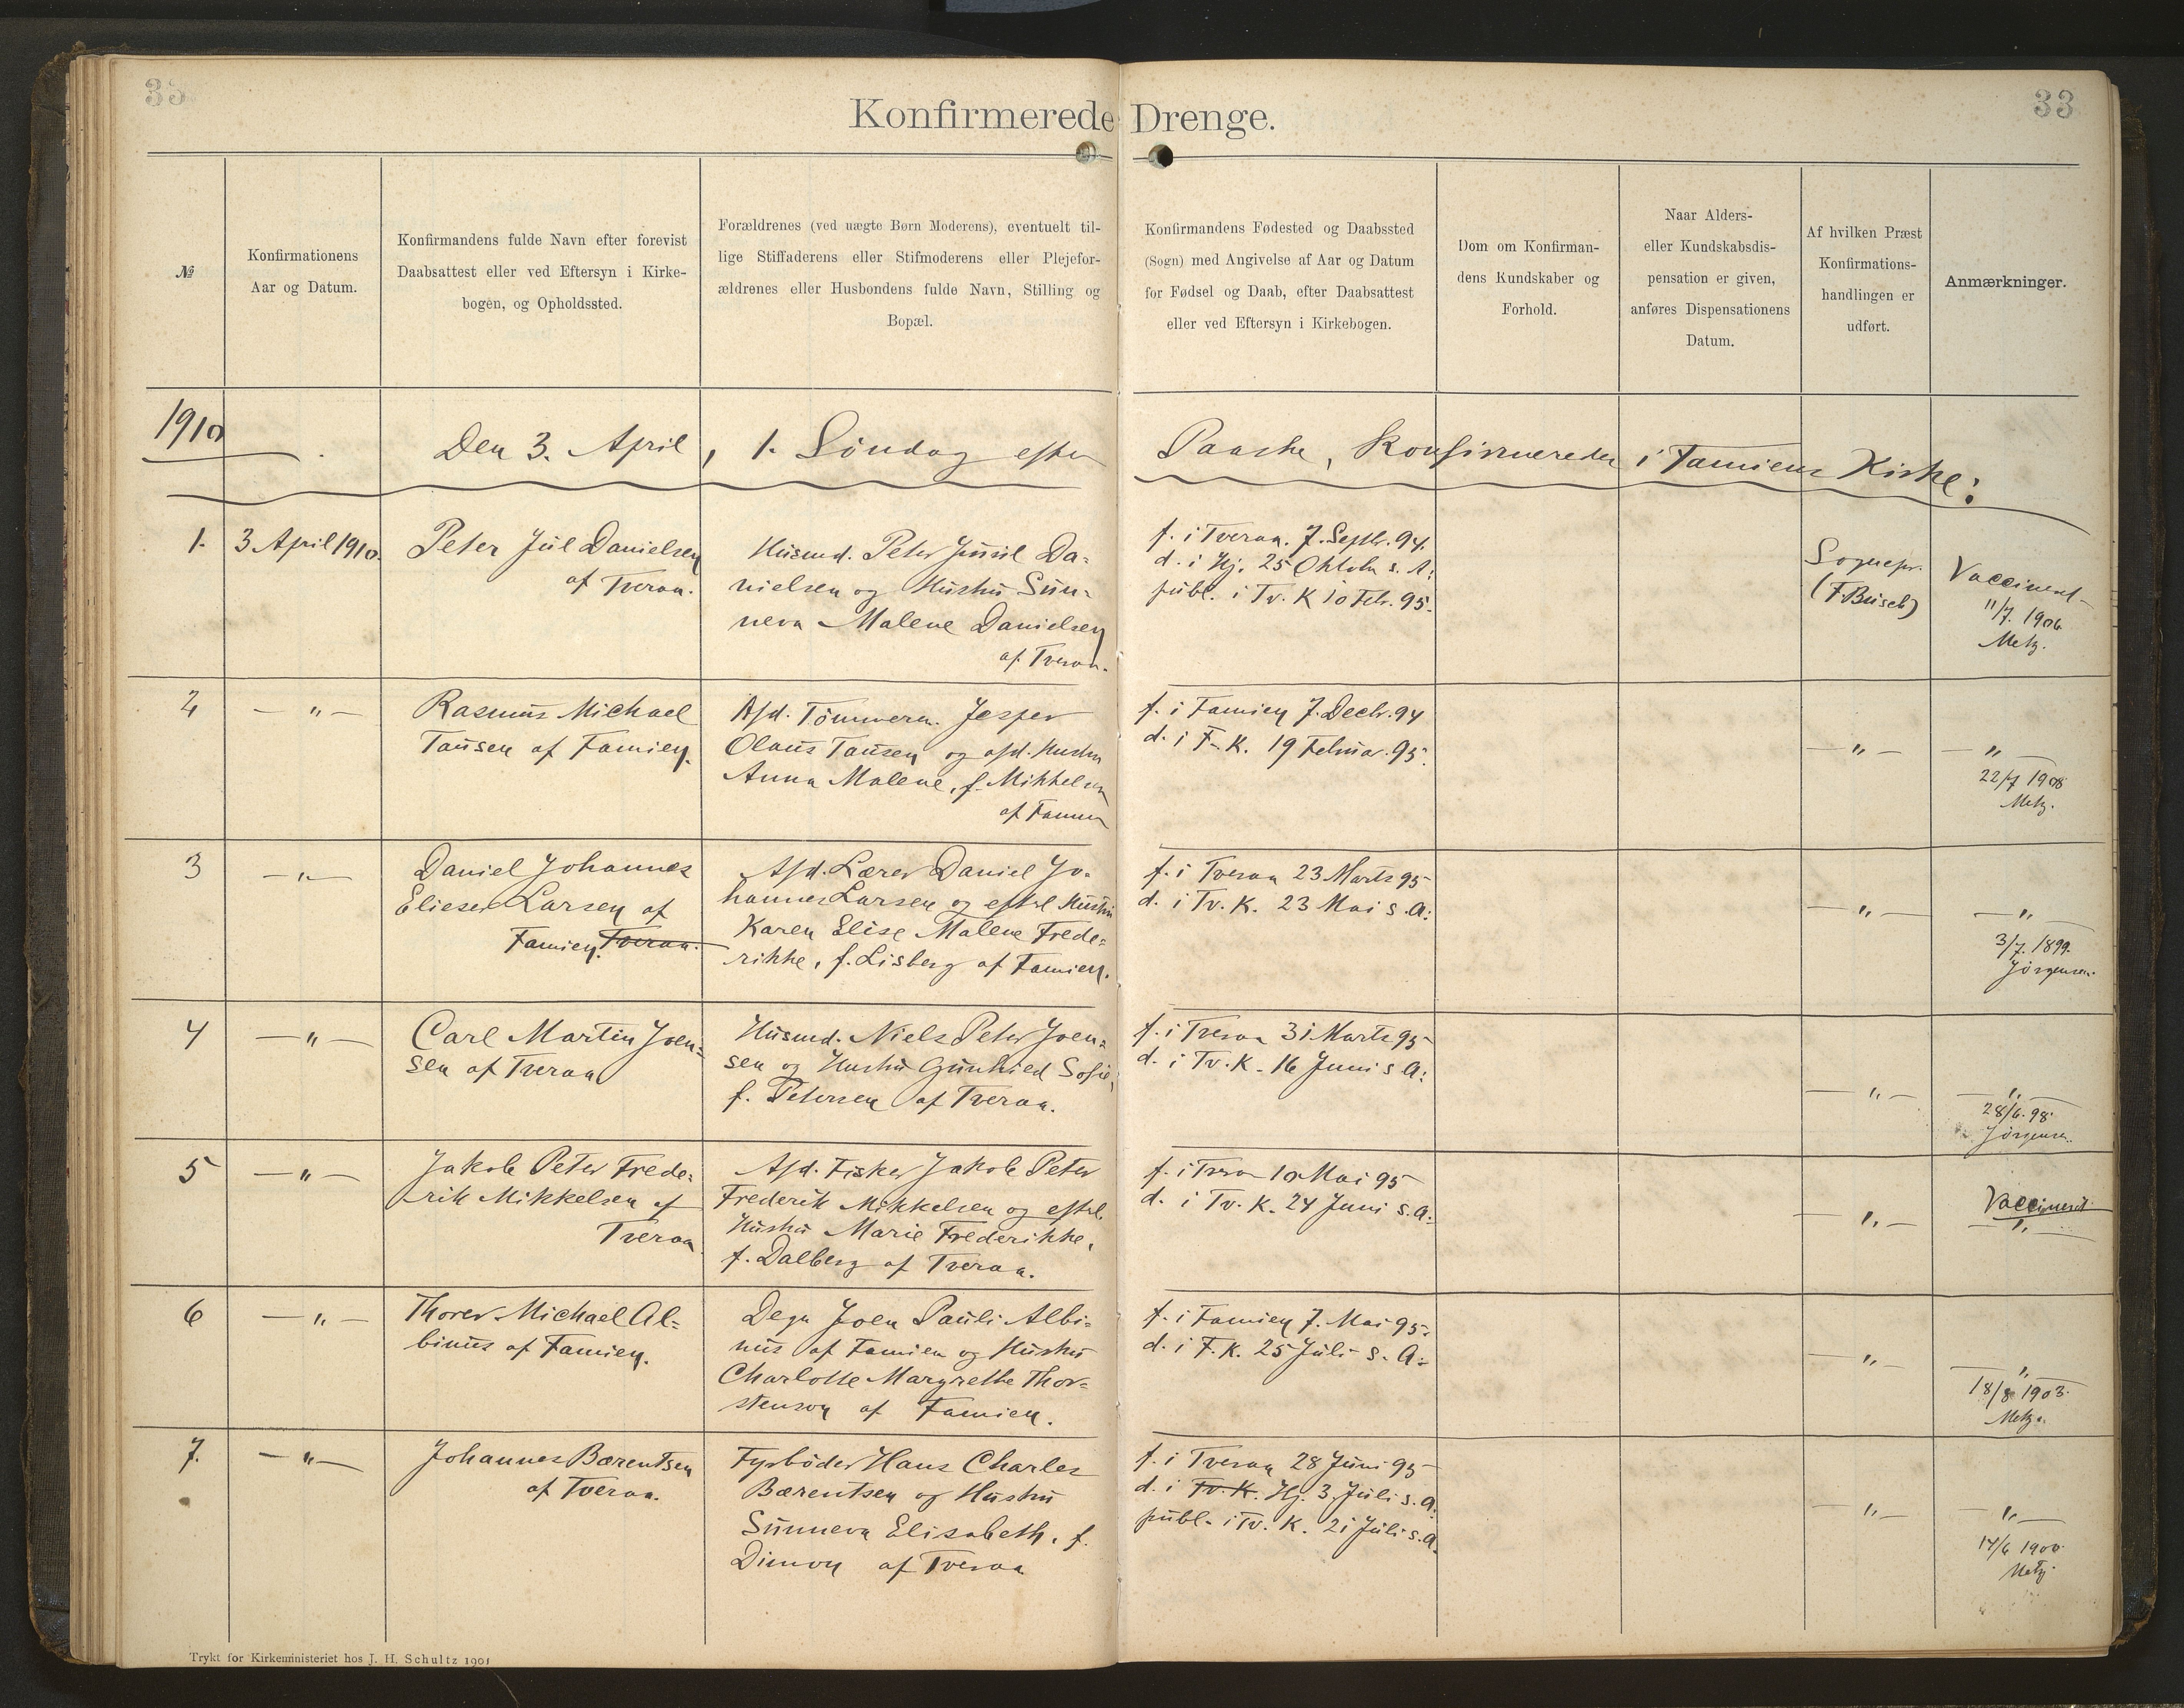 33
Konfirmerede Drenge.
33
№
Konfirmationens
Aar og Datum.
Konfirmandens fulde Navn efter forevist
Daabsattest eller ved Eftersyn i Kirke-
bogen, og Opholdssted.
Forældrenes (ved uægte Børn Moderens), eventuelt til-
lige Stiffaderens eller Stifmoderens eller Plejefor-
ældrenes eller Husbondens fulde Navn, Stilling og
Bopæl.
Konfirmandens Fødested og Daabssted
(Sogn) med Angivelse af Aar og Datum
for Fødsel og Daab, efter Daabsattest
eller ved Eftersyn i Kirkebogen.
Dom om Konfirman-
dens Kundskaber og
Forhold.
Naar Alders-
eller Kundskabsdis-
pensation er given,
anføres Dispensationens
Datum.
Af hvilken Præst
Konfirmations-
handlingen er
udført.
Anmærkninger.
1910
Den 3. April, 1. Söndag efter Paaske, Konfirmereder i Famiens Kirke:
1.
3 April 1910.
Peter Jül Danielsen
af Tveraa.
Husmd. Peter Juul Da-
nielsen og Hustru Sun-
neva Malene Danielsen
af Tveraa.
f. i Tveraa. 7. Septb. 94.
d. i Hj. 25 Oktobr s. A:
publ. i Tv. K 10 Feb. 95.
Sognepr.
(F. Busch)
Vaccineret
11/7. 1906
Metz.
2
— " —
Rasmus Michael
Tausen af Famien.
Afd. Tömmerm. Jesper
Olaus Tausen og afd. Hustru
Anna Malene, f. Mikkelsen
af Famien
f. i Famien 7. Decbr. 94
d. i F. K. 19 Februar. 95.
— " —
— " —
22/7 1908
Metz.
3
— " —
Daniel Johannes
Elieser Larsen af
Famien. Tveraa.
Afd. Lærer Daniel Jo-
hannes Larsen og eftel Hustru
Karen Elise Malene Frede-
rikke, f. Lisberg af Famien.
f. i Tveraa 23 Marts 95
d. i Tv. K. 23 Mai s. A:
— " —
— " —
3/7. 1899.
Jörgensen.
4
— " —
Carl Martin Joen-
sen af Tveraa
Husmd. Niels Peter Joen-
sen og Hustru Gunhild Sofie,
f. Petersen af Tveraa.
f. i Tveraa 31 Marts 95
d. i Tv. K. 16 Juni s A:
— " —
— " —
28/6. 98
Jörgensen.
5
— " —
Jakob Peter Frede-
rik Mikkelsen af
Tveraa.
Afd. Fisker Jakob Peter
Frederik Mikkelsen og eftel.
Hustru Marie Frederikke,
f. Dalberg af Tveraa.
f. i Tveraa 10 Mai 95
d. i Tv. K. 24 Juni s. A:
— " —
Vaccineret
— " —
6
— " —
Thorer Michael Al-
binus af Famien.
Degn Joen Pauli Albi-
nus af Famien og Hustru
Charlotte Margrethe Thor-
stenson af Famien.
f. i Famien 7. Mai 95.
d. i F. K. 25 Juli s. A:
— " —
— " —
18/8 1903.
Metz.
7.
— " —
Johannes Bærentsen
af Tveraa.
Fyrböder Hans Charles
Bærentsen og Hustru
Sunneva Elisabeth, f.
Dimon af Tveraa
f. i Tveraa 28 Juni 95
d. i Tv. K. Hj. 3. Juli s. A:
publ. i Tv. K. 21 Juli s. A.
— " —
— " —
17/6 1900
Metz.
Trykt for Kirkeministeriet hos J. H. Schultz 1901